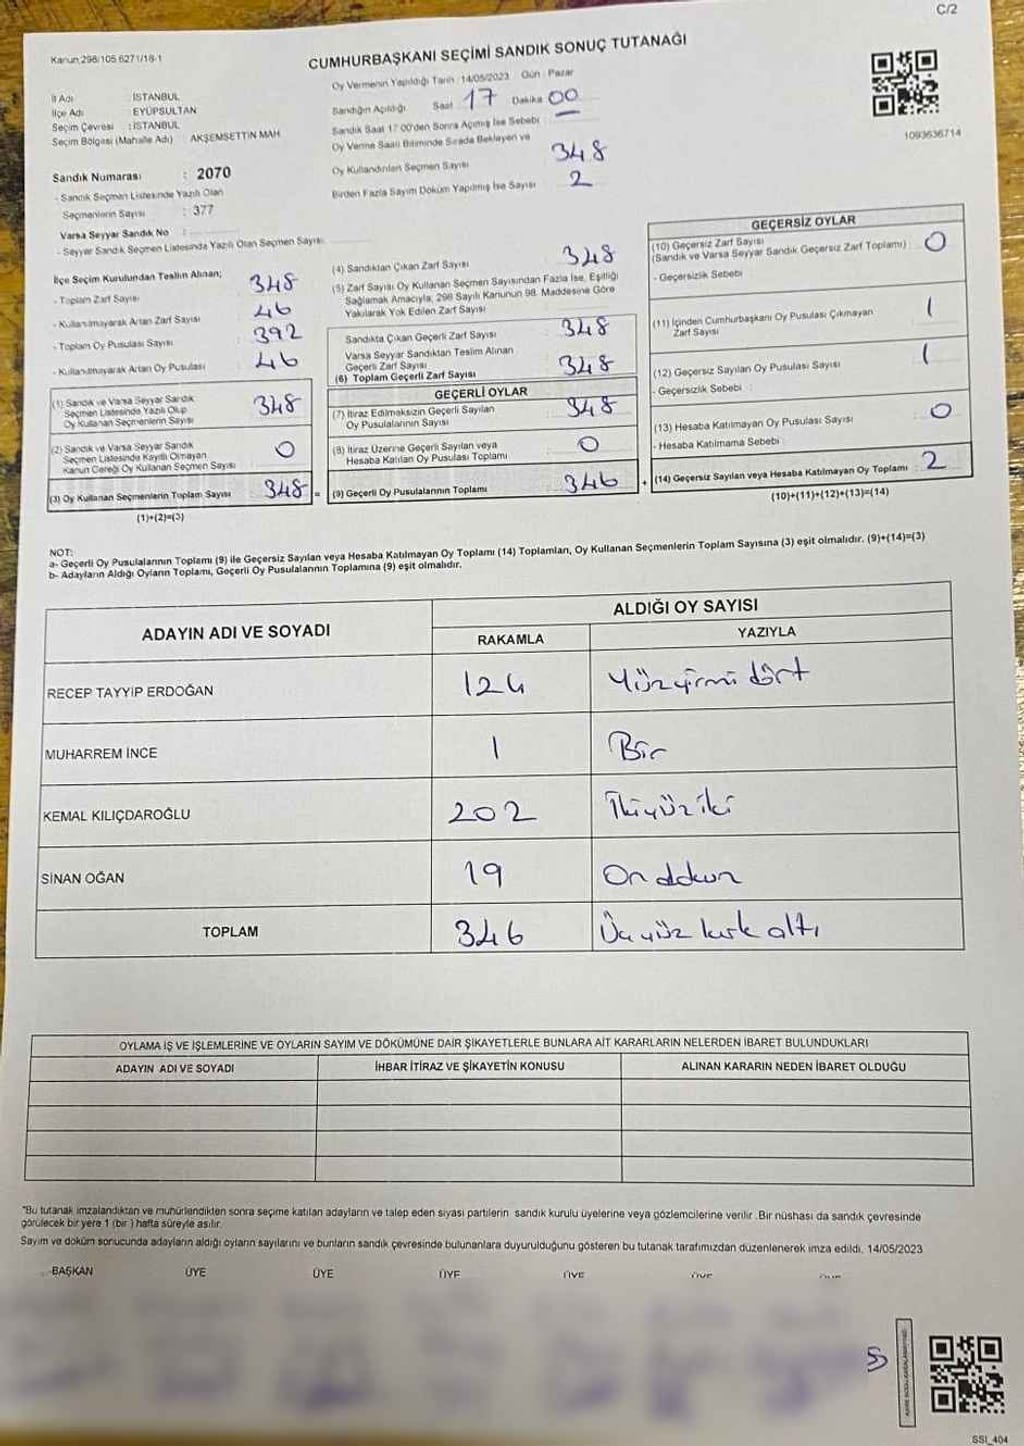 C/2
Kanun:298/105 6271/18-1
CUMHURBAŞKANI SEÇİMİ SANDIK SONUÇ TUTANAĞI
İl Adı : İSTANBUL
İlçe Adı : EYÜPSULTAN
Seçim Çevresi : İSTANBUL
Seçim Bölgesi (Mahalle Adı) AKŞEMSETTİN MAH
Oy Vermenin Yapıldığı Tarih : 14/05/2023 Gün : Pazar
Sandığın Açıldığı Saat 17 Dakika 00
Sandık Saat 17:00'den Sonra Açılmış İse Sebebi :
Oy Verme Saati Bitiminde Sırada Bekleyen ve
Oy Kullandırılan Seçmen Sayısı 348
Birden Fazla Sayım Döküm Yapılmış İse Sayısı 2
1093636714
Sandık Numarası : 2070
- Sandık Seçmen Listesinde Yazılı Olan
Seçmenlerin Sayısı : 377
Varsa Seyyar Sandık No :
- Seyyar Sandık Seçmen Listesinde Yazılı Olan Seçmen Sayısı:
İlçe Seçim Kurulundan Teslim Alınan;
- Toplam Zarf Sayısı : 348
- Kullanılmayarak Artan Zarf Sayısı : 46
- Toplam Oy Pusulası Sayısı : 392
- Kullanılmayarak Artan Oy Pusulası : 46
(1) Sandık ve Varsa Seyyar Sandık
Seçmen Listesinde Yazılı Olup
Oy Kullanan Seçmenlerin Sayısı : 348
(2) Sandık ve Varsa Seyyar Sandık
Seçmen Listesinde Kayıtlı Olmayan
Kanun Gereği Oy Kullanan Seçmen Sayısı : 0
(3) Oy Kullanan Seçmenlerin Toplam Sayısı : 348 =
(1)+(2)=(3)
(4) Sandıktan Çıkan Zarf Sayısı : 348
(5) Zarf Sayısı Oy Kullanan Seçmen Sayısından Fazla İse, Eşitliği
Sağlamak Amacıyla, 298 Sayılı Kanunun 98. Maddesine Göre
Yakılarak Yok Edilen Zarf Sayısı :
Sandıkta Çıkan Geçerli Zarf Sayısı : 348
Varsa Seyyar Sandıktan Teslim Alınan
Geçerli Zarf Sayısı :
(6) Toplam Geçerli Zarf Sayısı : 348
GEÇERLİ OYLAR
(7) İtiraz Edilmeksizin Geçerli Sayılan
Oy Pusulalarının Sayısı : 348
(8) İtiraz Üzerine Geçerli Sayılan veya
Hesaba Katılan Oy Pusulası Toplamı : 0
(9) Geçerli Oy Pusulalarının Toplamı : 346 +
GEÇERSİZ OYLAR
(10) Geçersiz Zarf Sayısı
(Sandık ve Varsa Seyyar Sandık Geçersiz Zarf Toplamı) : 0
- Geçersizlik Sebebi :
(11) İçinden Cumhurbaşkanı Oy Pusulası Çıkmayan
Zarf Sayısı : 1
(12) Geçersiz Sayılan Oy Pusulası Sayısı : 1
- Geçersizlik Sebebi :
(13) Hesaba Katılmayan Oy Pusulası Sayısı : 0
- Hesaba Katılmama Sebebi :
(14) Geçersiz Sayılan veya Hesaba Katılmayan Oy Toplamı : 2
(10)+(11)+(12)+(13)=(14)
NOT:
a- Geçerli Oy Pusulalarının Toplamı (9) ile Geçersiz Sayılan veya Hesaba Katılmayan Oy Toplamı (14) Toplamları, Oy Kullanan Seçmenlerin Toplam Sayısına (3) eşit olmalıdır. (9)+(14)=(3)
b- Adayların Aldığı Oyların Toplamı, Geçerli Oy Pusulalarının Toplamına (9) eşit olmalıdır.
ADAYIN ADI VE SOYADI
ALDIĞI OY SAYISI
RAKAMLA YAZIYLA
RECEP TAYYİP ERDOĞAN 124 Yüzyirmi dört
MUHARREM İNCE 1 Bir
KEMAL KILIÇDAROĞLU 202 İkiyüz iki
SİNAN OĞAN 19 On dokuz
TOPLAM 346 Üçyüz kırk altı
OYLAMA İŞ VE İŞLEMLERİNE VE OYLARIN SAYIM VE DÖKÜMÜNE DAİR ŞİKAYETLERLE BUNLARA AİT KARARLARIN NELERDEN İBARET BULUNDUKLARI
ADAYIN ADI VE SOYADI İHBAR İTİRAZ VE ŞİKAYETİN KONUSU ALINAN KARARIN NEDEN İBARET OLDUĞU
"Bu tutanak imzalandıktan ve mühürlendikten sonra seçime katılan adayların ve talep eden siyasi partilerin sandık kurulu üyelerine veya gözlemcilerine verilir .Bir nüshası da sandık çevresinde
görülecek bir yere 1 (bir ) hafta süreyle asılır.
Sayım ve döküm sonucunda adayların aldığı oyların sayılarını ve bunların sandık çevresinde bulunanlara duyurulduğunu gösteren bu tutanak tarafımızdan düzenlenerek imza edildi. 14/05/2023
BAŞKAN ÜYE ÜYE ÜYE ÜYE ÜYE
5
SSI_404